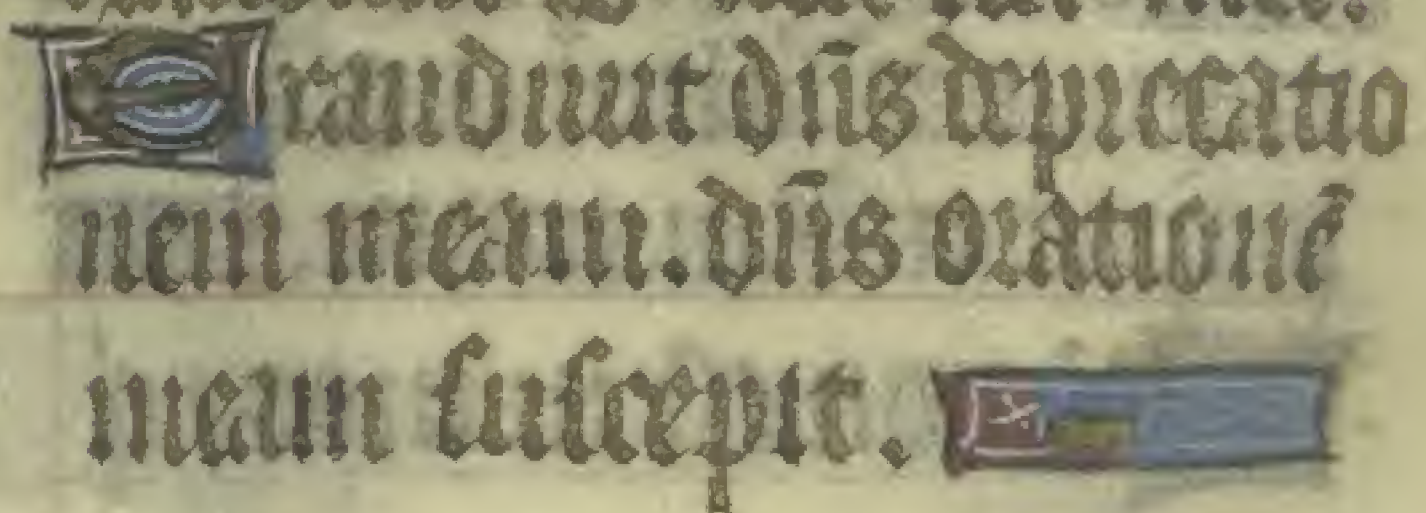 Exaudiuit dñs deprecatio
nem meam. dñs orationẽ
meam suscepit.